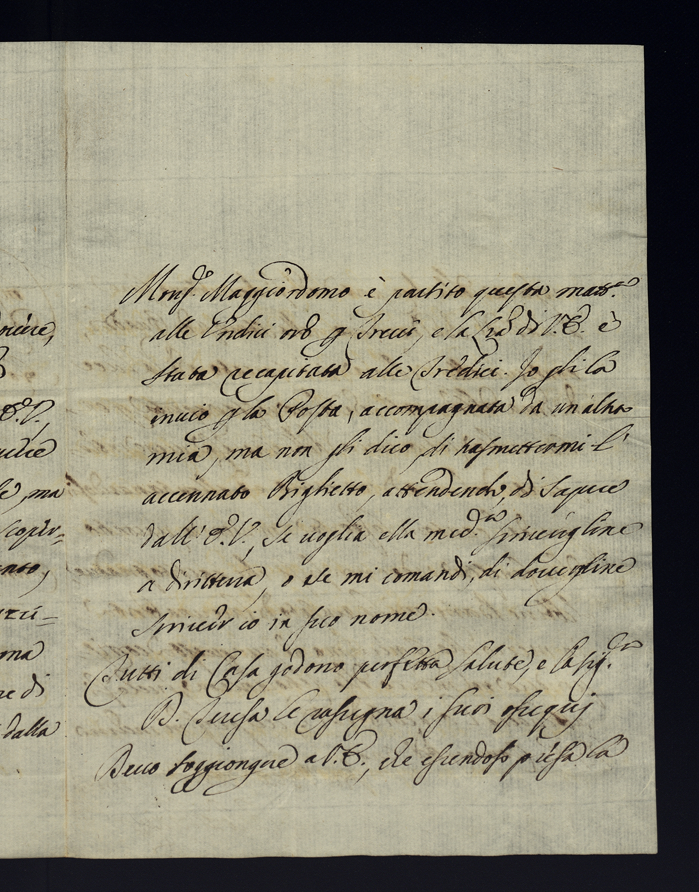 ncère,
V.E.,
udice
le, ma
scoper-
ento,
ma
re di
dalla
Monsr. Maggiordomo è partito questa matt.na
alle Undici ore p Trecei, e la Lra di V.E. è
stata recapitata alle Tredici. Io gli la
invio p la Posta, accompagnata da un'altra
mia, ma non gli dico, di trasmettermi l'
accennato Biglietto, attendendo, di sapere
dall' E.V., se voglia ella med.ma scrivergline
a dirittura, o se mi comandi, di dovergline
scriver io in suo nome.
Tutti di Casa godono perfetta salute, e la Sig.ra
D. Teresa le rassegna i suoi ossequj
Devo soggiongere a V.E., che essendosi p
la